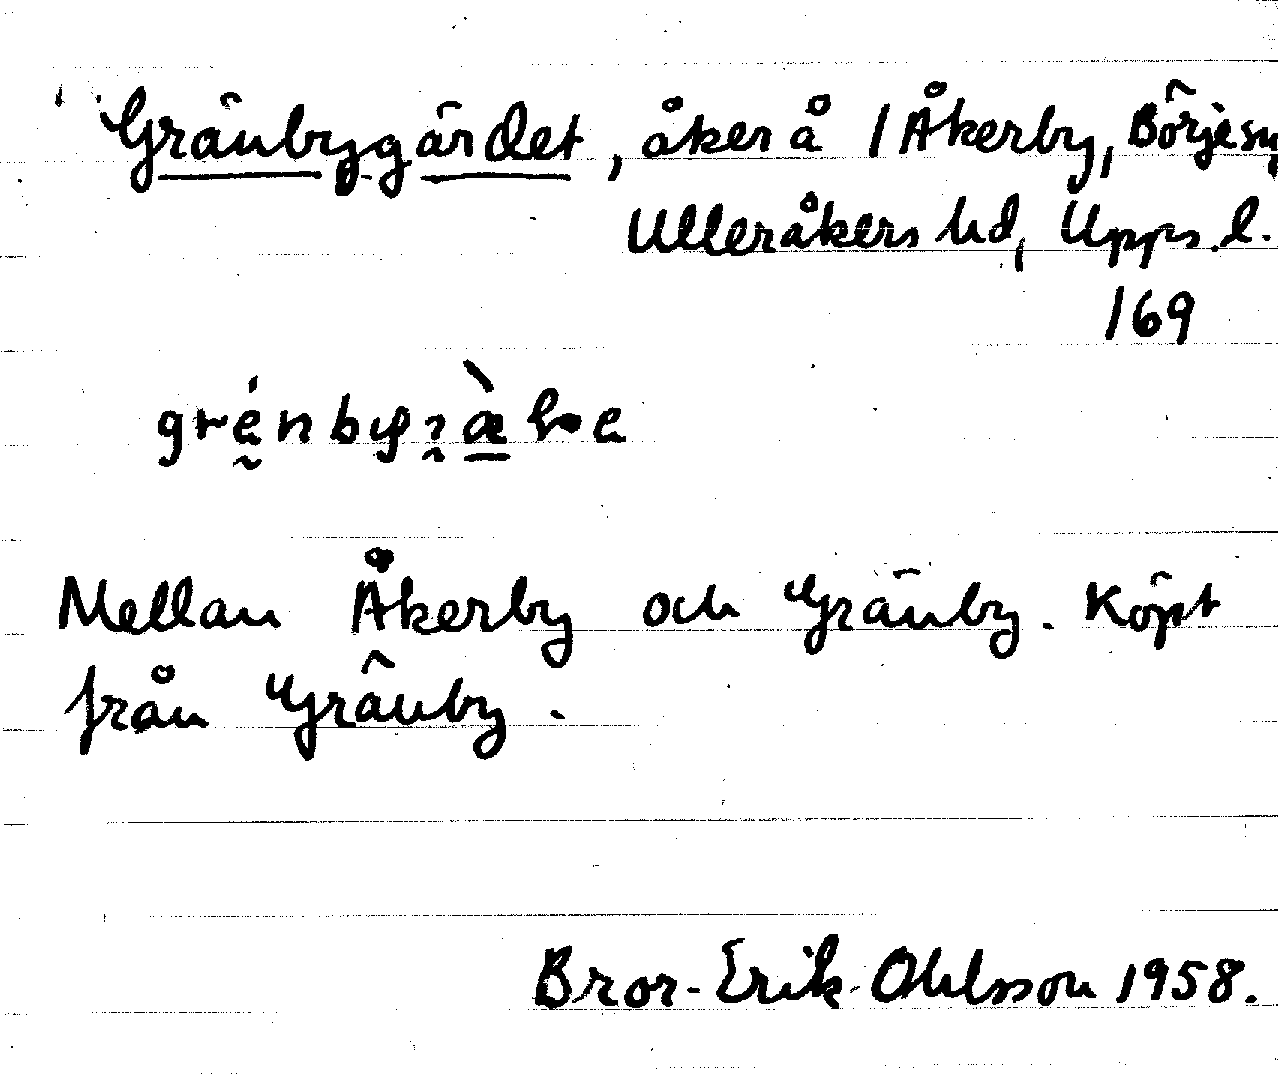 Gränbygärdet, åker å 1 Åkerby, Börje sn
Ulleråkers hd, Upps. l.
169
Mellan Åkerby och Gränby. Köpt
från Gränby.
Bror-Erik Ohlsson 1958.